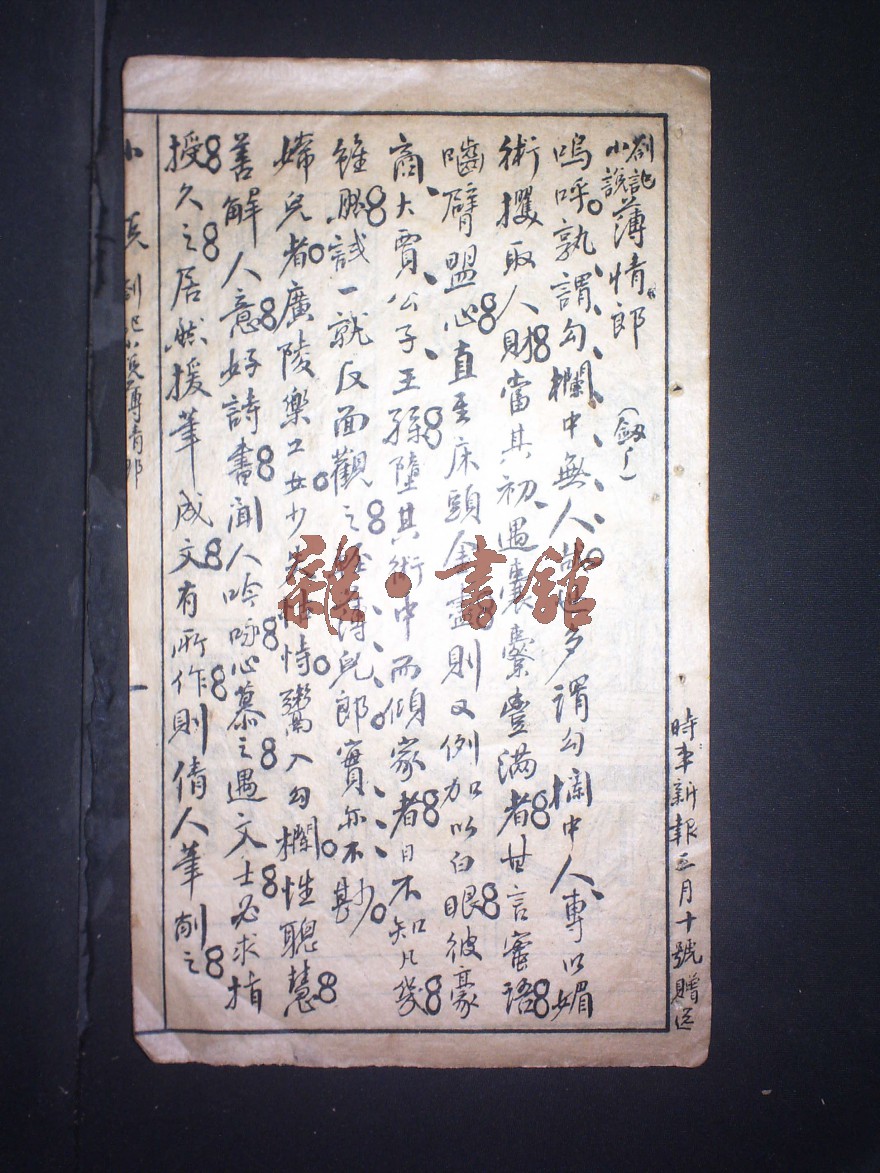 時事新報三月十號贈送
劄記小說 薄情郎 (劔)
嗚呼孰謂勾欄中無人哉世多謂勾欄中人專以媚
術攫取人財當其初遇囊橐豐滿者甘言蜜語
嚙臂盟心直至床頭金盡則又例加以白眼彼豪
商大賈公子王孫墮其術中而傾家者日不知凡幾
雖然試一就反面觀之輕薄兒郎實亦不尠
嫦兒者廣陵樂工女少失怙恃鬻入勾欄性聰慧
善解人意好詩書聞人吟咏心慕之遇文士必求指
授久之居然援筆成文有所作則倩人筆削之
小說 劄記小說薄情郎
雜·書館